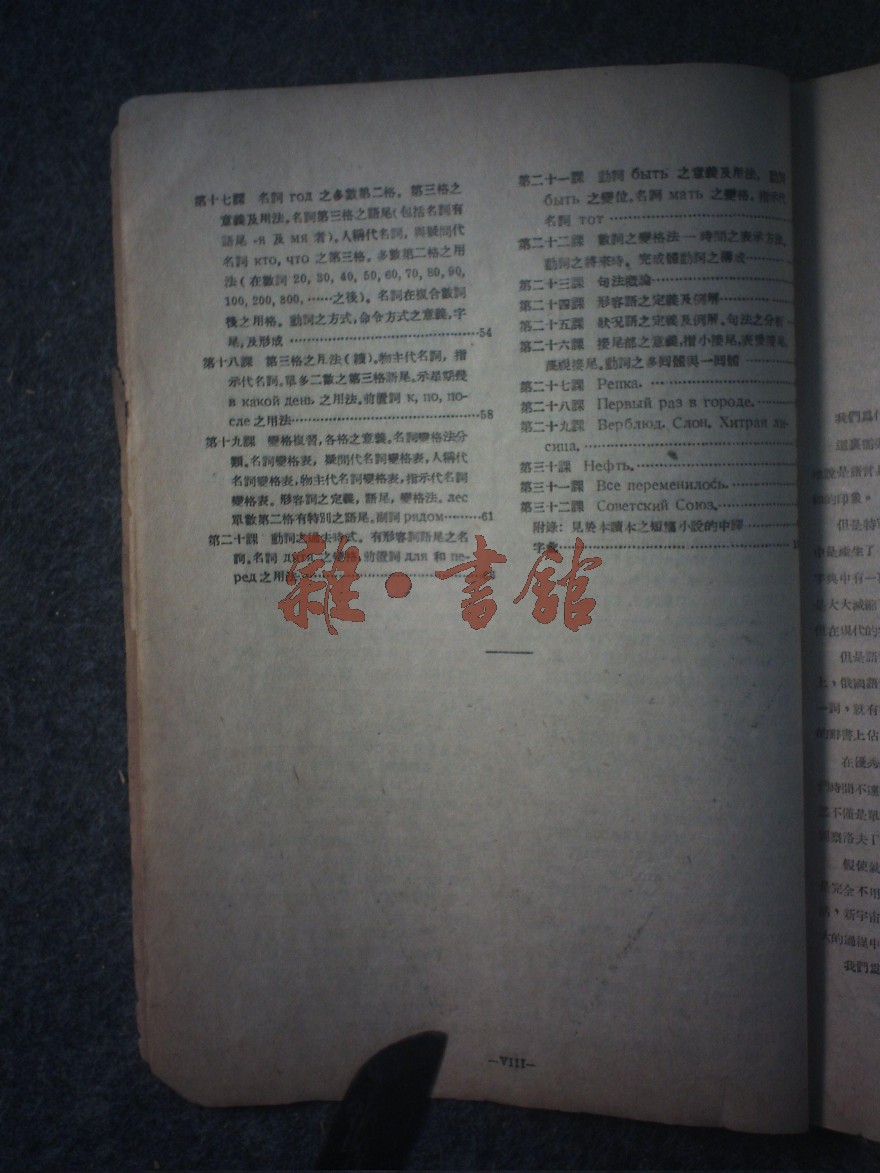 第十七課 名詞 год 之多數第二格。第三格之
意義及用法。名詞第三格之語尾(包括名詞有
語尾 -я 及 мя 者)。人稱代名詞,與疑問代
名詞 кто, что 之第三格。多數第二格之用
法(在數詞 20, 30, 40, 50, 60, 70, 80, 90,
100, 200, 300, ……之後)。名詞在複合數詞
後之用格。動詞之方式,命令方式之意義,字
尾,及形成 ……54
第十八課 第三格之用法(續)。物主代名詞,指
示代名詞,單多二數之第三格語尾。示星期幾
в какой день 之用法。前置詞 к, по, по-
сле 之用法……58
第十九課 變格複習,各格之意義。名詞變格法分
類。名詞變格表,疑問代名詞變格表,人稱代
名詞變格表,物主代名詞變格表,指示代名詞
變格表。形容詞之定義,語尾,變格法。лес
單數第二格有特別之語尾。副詞 рядом……61
第二十課 動詞之過去時式。有形容詞語尾之名
詞。名詞 дитя 之變格。前置詞 для 和 пе-
ред 之用法……
第二十一課 動詞 быть 之意義及用法。動詞
быть 之變位。名詞 мать 之變格。指示代
名詞 тот……
第二十二課 數詞之變格法—時間之表示方法。
動詞之將來時。完成體動詞之構成……
第二十三課 句法概論……
第二十四課 形容語之定義及例解……
第二十五課 狀況語之定義及例解。句法之分析
第二十六課 接尾部之意義,指小接尾,表愛接尾,
蔑視接尾。動詞之多回體與一回體……
第二十七課 Репка.……
第二十八課 Первый раз в городе.……
第二十九課 Верблюд. Слон. Хитрая ли-
сица.……
第三十課 Нефть.……
第三十一課 Все переменилось.……
第三十二課 Советский Союз.……
附錄:見於本讀本之短篇小說的中譯
字彙……
雜·書館
—VIII—
我們爲
這裏
說是
的印象。
但是特
中是產生了
字典中有一
是大大減縮
但在現代的
但是語
上,俄國語
一詞,就有
的聯書上佔
在優秀
時間不
不僅是單
洛夫
假使
完全不用
,新宇宙
大的過程中
我們爲